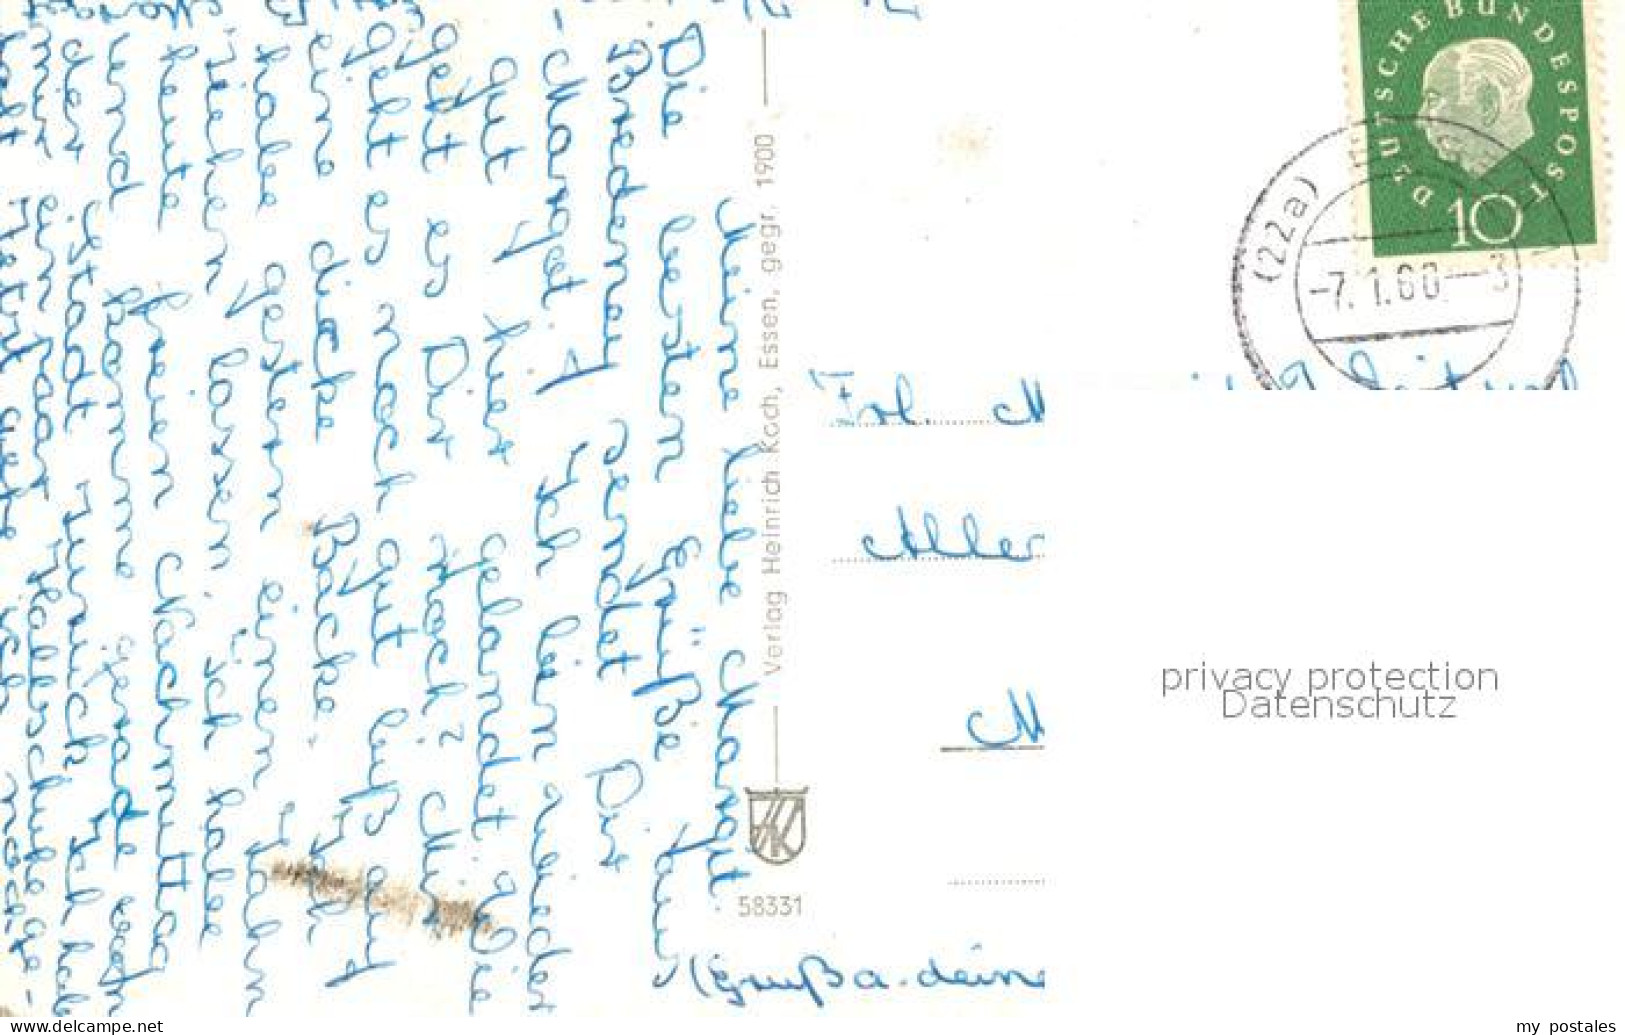 Meine liebe Margit.
Die besten Grüße aus
Bredeney sendet Dir
Margot. Ich bin wieder
gut hier gelandet. Wie
geht es Dir noch? Mir
geht es noch gut bis auf
eine dicke Backe. Ich
habe gestern einen Zahn
ziehen lassen. Ich habe
heute freien Nachmittag
und komme gerade von
der Stadt zurück. Ich hab
mir ein paar Halbschuhe ge-
Verlag Heinrich Koch, Essen, gegr. 1900
HK
58331
DEUTSCHE BUNDESPOST
10
(22a)
-7.1.60-3
Frl. M
Aller
M
(Gruß a. deine
privacy protection
Datenschutz
delcampe.net
my_postales